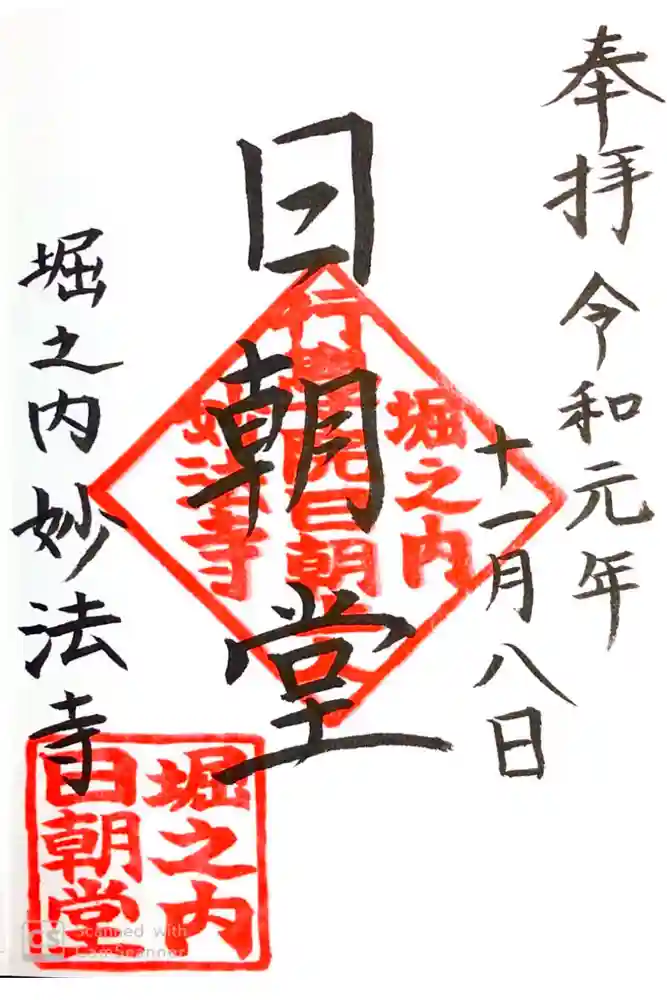 奉拝 令和元年
十一月八日
日朝堂
堀之内 妙法寺
堀之内
妙法寺
堀之内
日朝堂
CS Scanned with
CamScanner